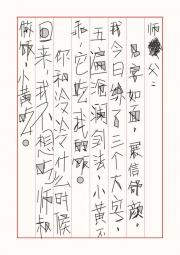 师父：
见字如面，展信舒颜。
我今日练了三个大字，
五遍流澜剑法，小黄不
乖，它吃我的饭。
你和冷冷什么时候
回来，我不想吃师叔
做饭，小黄也。